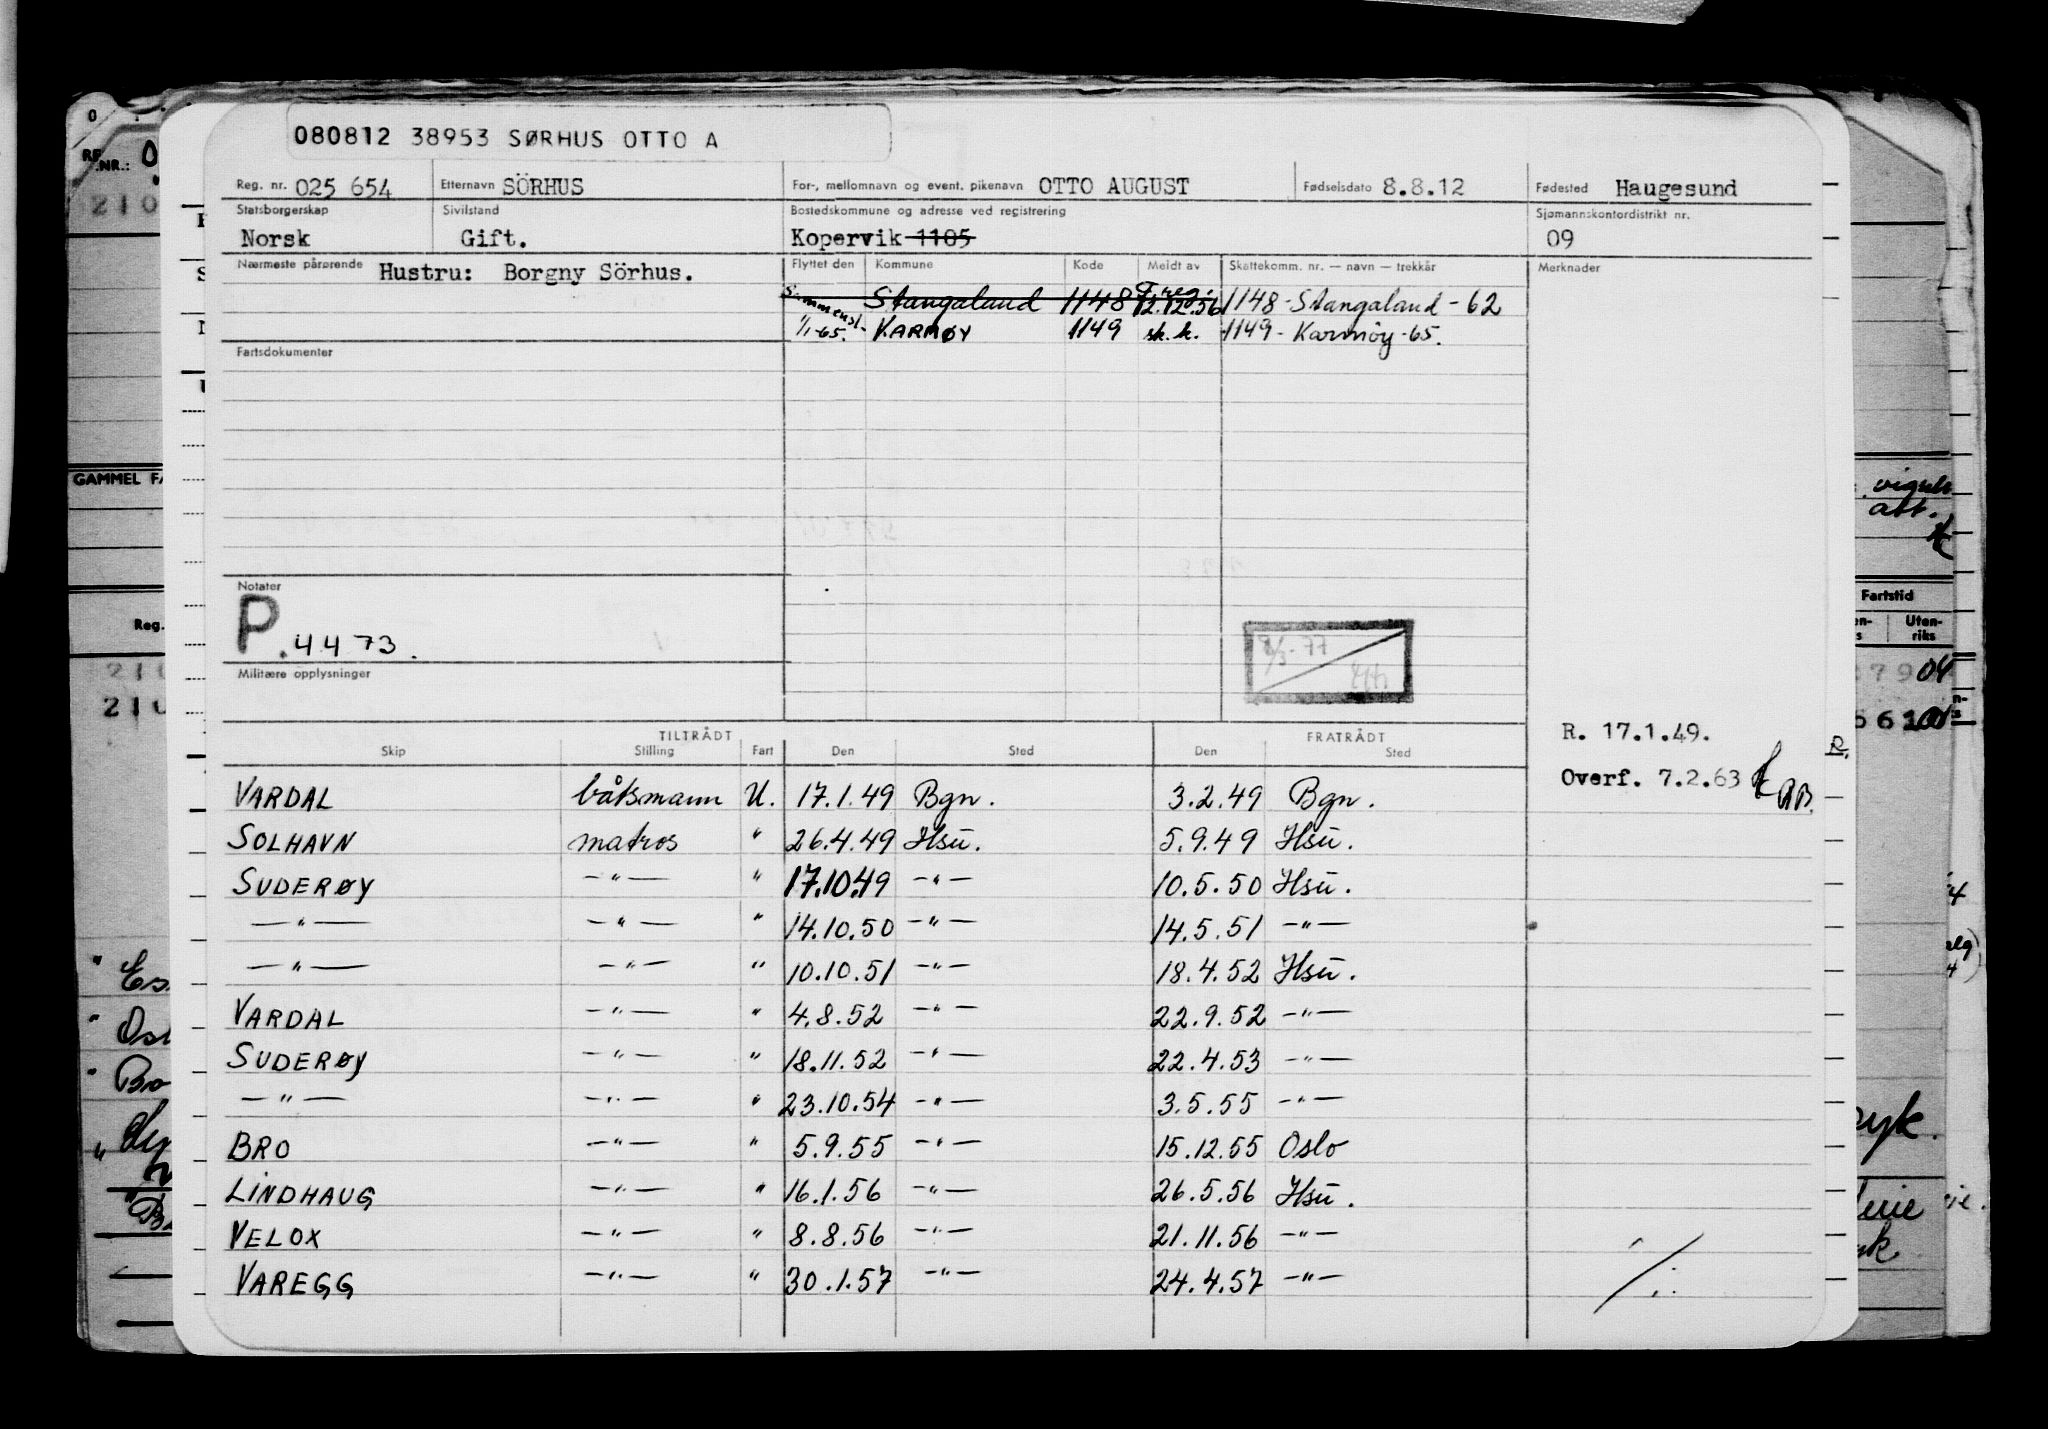 080812 38953 SØRHUS OTTO A
Reg. nr. 025 654 Etternavn SÖRHUS For-, mellomnavn og event. pikenavn OTTO AUGUST Fødselsdato 8.8.12 Fødested Haugesund
Statsborgerskap Sivilstand Bostedskommune og adresse ved registrering Sjømannskontordistrikt nr.
Norsk Gift. Kopervik 1105 09
Nærmeste pårørende Hustru: Borgny Sörhus. Flyttet den Kommune Kode Meldt av Skattekomm. nr. — navn — trekkår Merknader
Stangaland 1148 12.12.56 1148 - Stangaland - 62
1/1-65. KARMØY 1149 sk.k. 1149 - Karmöy - 65.
Fartsdokumenter
Notater
P. 4473.
Militære opplysninger
TILTRÅDT FRATRÅDT
Skip Stilling Fart Den Sted Den Sted
R. 17.1.49.
Overf. 7.2.63
VARDAL båtsmann U. 17.1.49 Bgn. 3.2.49 Bgn.
SOLHAVN matros " 26.4.49 Hsu. 5.9.49 Hsu.
SUDERØY —"— " 17.10.49 —"— 10.5.50 Hsu.
—"— —"— " 14.10.50 —"— 14.5.51 —"—
—"— —"— " 10.10.51 —"— 18.4.52 Hsu.
VARDAL —"— " 4.8.52 —"— 22.9.52 —"—
SUDERØY —"— " 18.11.52 —"— 22.4.53 —"—
—"— —"— " 23.10.54 —"— 3.5.55 —"—
BRO —"— " 5.9.55 —"— 15.12.55 Oslo
LINDHAUG —"— " 16.1.56 —"— 26.5.56 Hsu.
VELOX —"— " 8.8.56 —"— 21.11.56 —"—
VAREGG —"— " 30.1.57 —"— 24.4.57 —"—
GAMMEL
Reg.
Fartstid
Uten-
riks